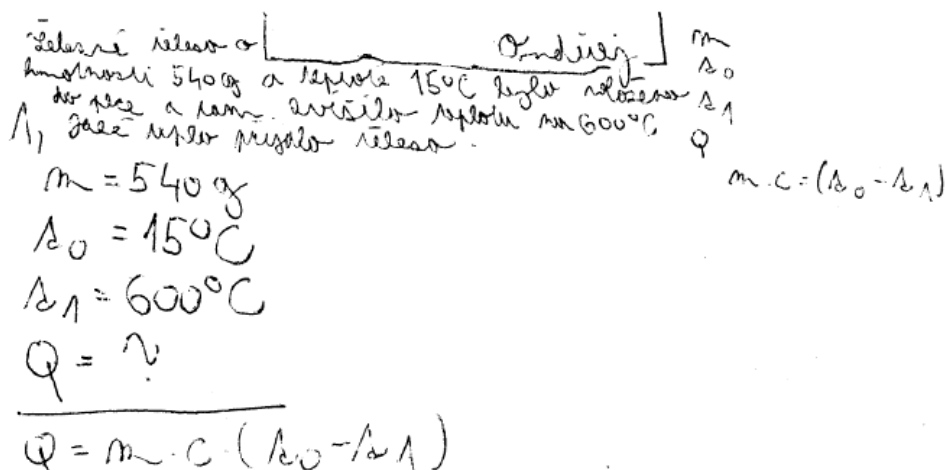 Železné těleso o Ondřej
hmotnosti 540g a teplotě 15°C bylo vloženo
do pece a tam zvýšilo teplotu na 600°C
1, Jaké teplo přijalo těleso.
m = 540 g
t0 = 15°C
t1 = 600°C
Q = ?
Q = m · c · (t0 - t1)
m
t0
t1
Q
m · c = (t0 - t1)